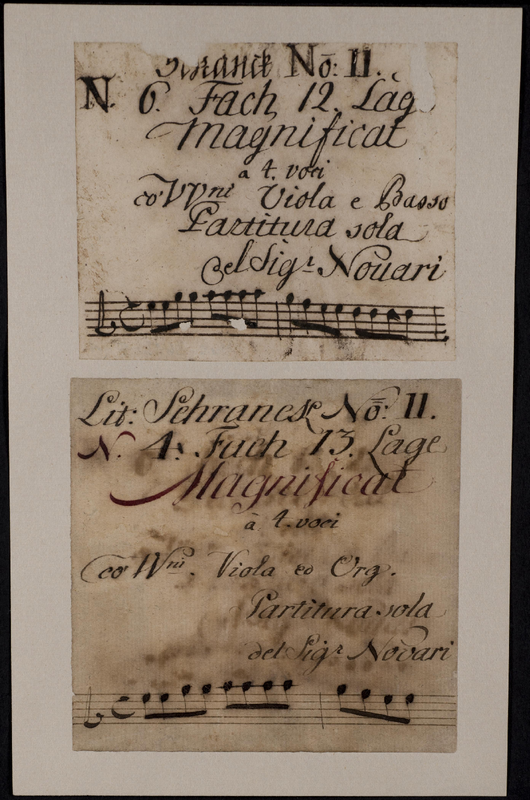 Schranck No: II.
N. 6. Fach 12. Lage
Magnificat
a 4. voci
co VVni Viola e Basso
Partitura sola
Del Sigr Novari
Lit: Schranck No: II.
N. 4. Fach 13. Lage
Magnificat
à 4. voci
co VVni. Viola co Org.
Partitura sola
del Sigr Novari